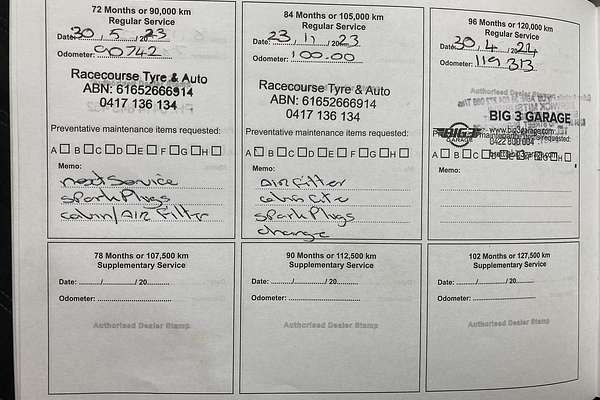 72 Months or 90,000 km
Regular Service
Date: 30, 5 /20 23
Odometer: 90742
Racecourse Tyre & Auto
ABN: 61652666914
0417 136 134
Preventative maintenance items requested:
A B C D E F G H
Memo:
next service
Spark Plugs
cabin/AIR Filter
84 Months or 105,000 km
Regular Service
Date: 23, 11 /2023
Odometer: 100.00
Racecourse Tyre & Auto
ABN: 61652666914
0417 136 134
Preventative maintenance items requested:
A B C D E F G H
Memo:
AIR Filter
Spark Plugs
change
96 Months or 120,000 km
Regular Service
Date: 30, 4 /20 24
Odometer: 119313
Authorised Dealer Stamp
BIG 3 GARAGE
BIG3
GARAGE
www.big3garage.com
requested:
A B C D E F G H
Memo:
78 Months or 107,500 km
Supplementary Service
Date: ......../......../20........
Odometer:
Authorised Dealer Stamp
90 Months or 112,500 km
Supplementary Service
Date: ......../......../20........
Odometer:
Authorised Dealer Stamp
102 Months or 127,500 km
Supplementary Service
Date: ......../......../20........
Odometer:
Authorised Dealer Stamp